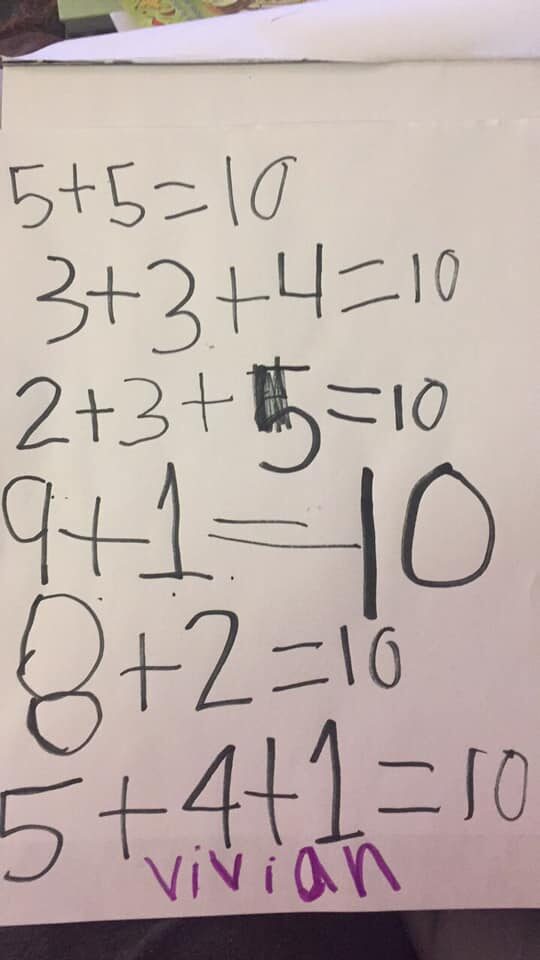 5+5=10
3+3+4=10
2+3+5=10
9+1=10
8+2=10
5+4+1=10
vivian